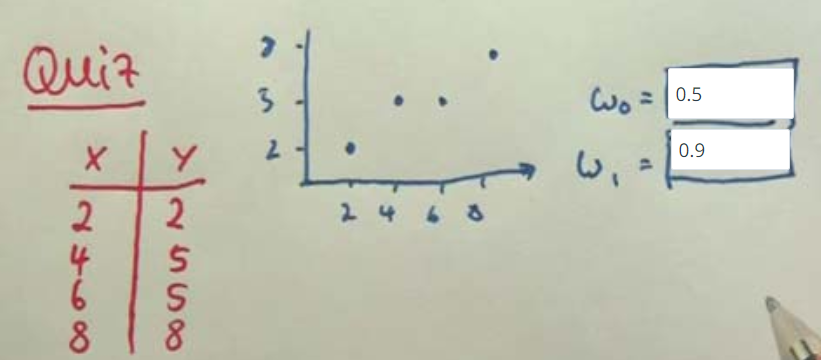 Quiz
X Y
2 2
4 5
6 5
8 8
8
5
2
2 4 6 8
ω₀ = 0.5
ω₁ = 0.9